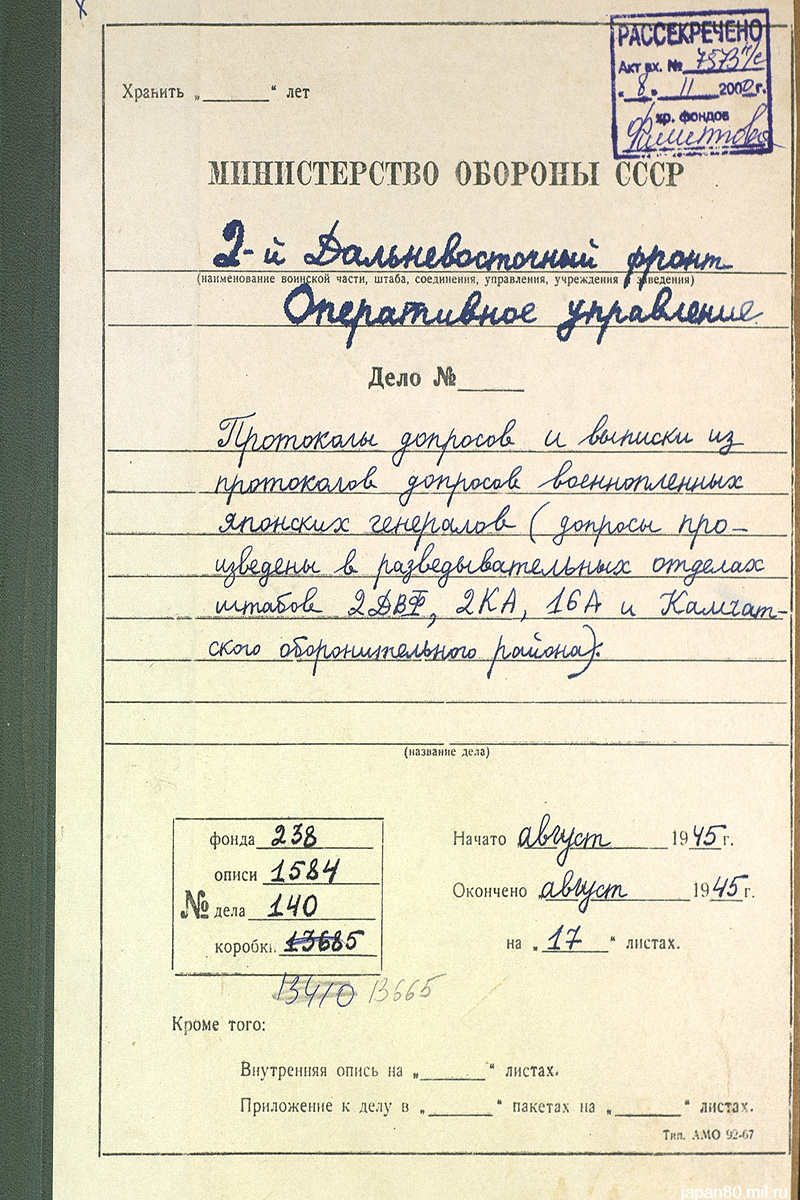 РАССЕКРЕЧЕНО
Акт вх. №
„ 8 „ 11 2000 г.
хр. фондов
Хранить „ “ лет
МИНИСТЕРСТВО ОБОРОНЫ СССР
2-й Дальневосточный фронт
(наименование воинской части, штаба, соединения, управления, учреждения заведения)
Оперативное управление
Дело №
Протоколы допросов и выписки из
протоколов допросов военнопленных
японских генералов (допросы про-
изведены в разведывательных отделах
штабов 2ДВФ, 2КА, 16А и Камчат-
ского оборонительного района).
(название дела)
№
фонда 238
описи 1584
дела 140
коробки 13685
13410 13665
Начато август 1945 г.
Окончено август 1945 г.
на „ 17 “ листах.
Кроме того:
Внутренняя опись на „ “ листах.
Приложение к делу в „ “ пакетах на „ “ листах.
Тип. АМО 92-67
japan80.mil.ru